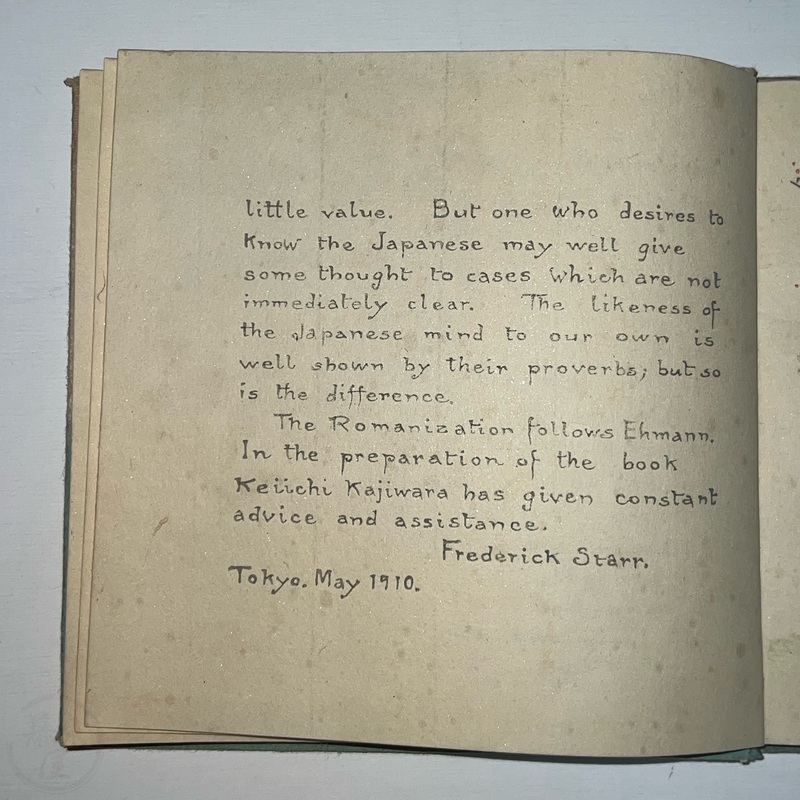 little value. But one who desires to
know the Japanese may well give
some thought to cases which are not
immediately clear. The likeness of
the Japanese mind to our own is
well shown by their proverbs; but so
is the difference.
The Romanization follows Ehmann.
In the preparation of the book
Keiichi Kajiwara has given constant
advice and assistance.
Frederick Starr.
Tokyo. May 1910.